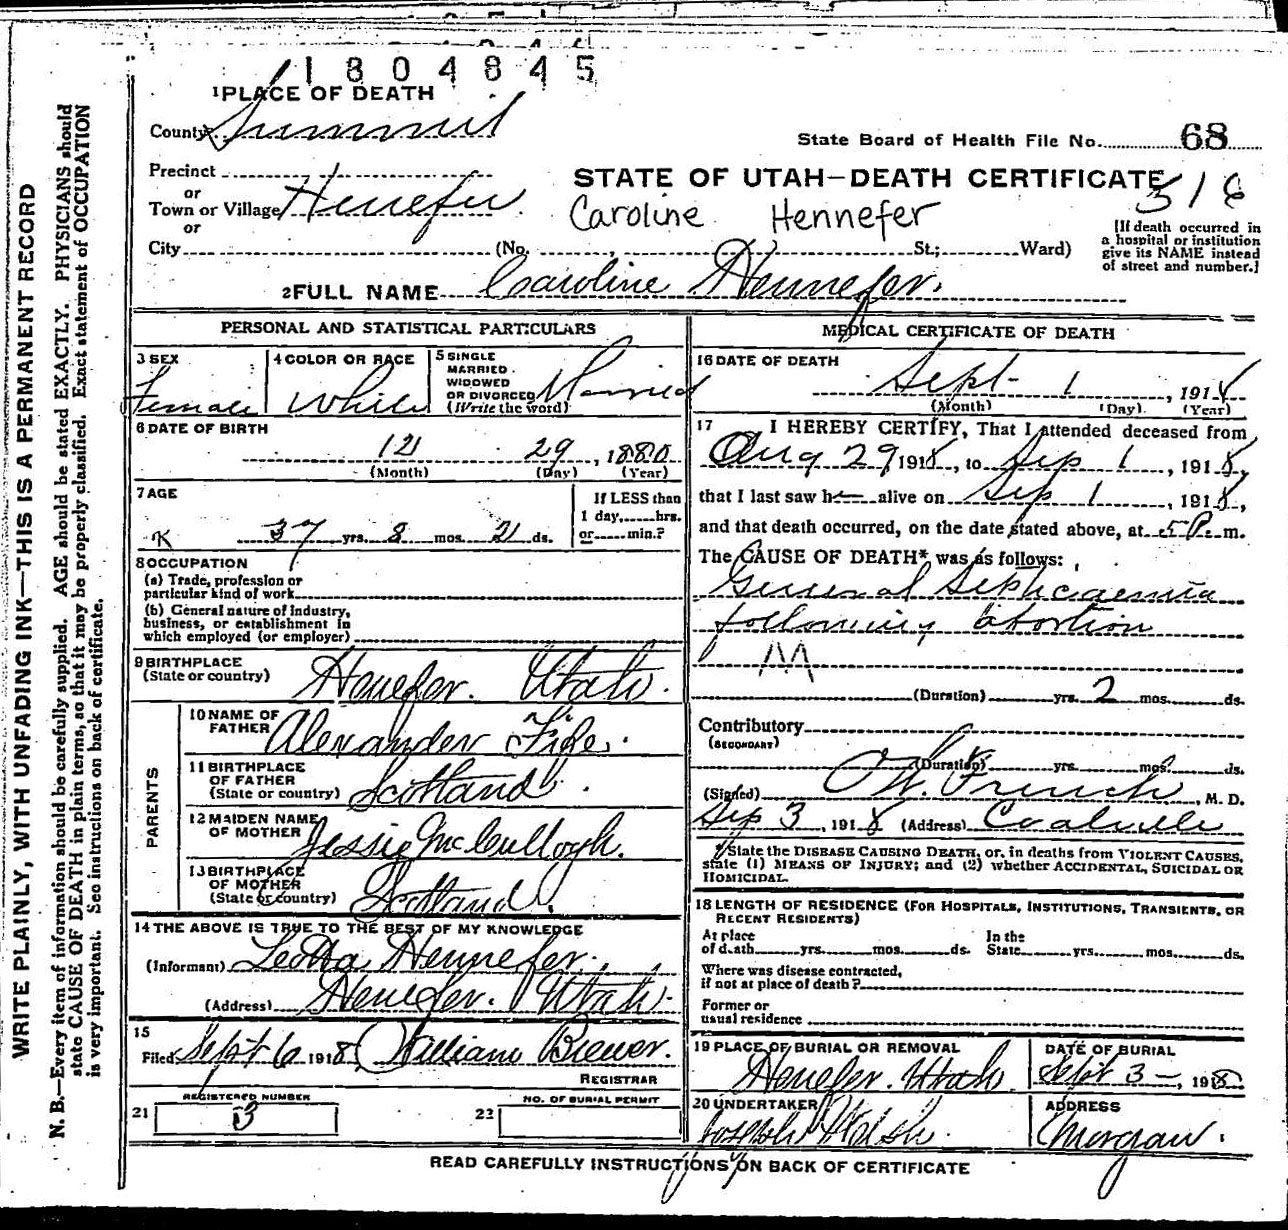 1804845
1 PLACE OF DEATH
County Summit
State Board of Health File No. 68
Precinct
or
Town or Village Henefer
or
City (No. , St.; Ward)
STATE OF UTAH—DEATH CERTIFICATE
318
Caroline Hennefer
[If death occurred in
a hospital or institution
give its NAME instead
of street and number.]
2 FULL NAME Caroline Hennefer.
PERSONAL AND STATISTICAL PARTICULARS
3 SEX
Female
4 COLOR OR RACE
White
5 SINGLE
MARRIED
WIDOWED
OR DIVORCED
(Write the word)
Married
6 DATE OF BIRTH
12 29, 1880
(Month) (Day) (Year)
7 AGE
If LESS than
1 day, hrs.
or min.?
K 37 yrs. 8 mos. 21 ds.
8 OCCUPATION
(a) Trade, profession or
particular kind of work
(b) General nature of industry,
business, or establishment in
which employed (or employer)
9 BIRTHPLACE
(State or country)
Henefer. Utah.
PARENTS
10 NAME OF
FATHER
Alexander Fife.
11 BIRTHPLACE
OF FATHER
(State or country)
Scotland.
12 MAIDEN NAME
OF MOTHER
Jessie McCullogh.
13 BIRTHPLACE
OF MOTHER
(State or country)
Scotland.
14 THE ABOVE IS TRUE TO THE BEST OF MY KNOWLEDGE
(Informant) Hennefer.
(Address) Henefer. Utah.
15
Filed Sept 6 1918 William Brewer.
REGISTRAR
21
REGISTERED NUMBER
3
22
NO. OF BURIAL PERMIT
MEDICAL CERTIFICATE OF DEATH
16 DATE OF DEATH
Sept 1, 1918
(Month) (Day) (Year)
17 I HEREBY CERTIFY, That I attended deceased from
Aug 29 1918, to Sep 1, 1918,
that I last saw her alive on Sep 1, 1918,
and that death occurred, on the date stated above, at 5 P. m.
The CAUSE OF DEATH* was as follows:
General Septicaemia
following abortion
M
(Duration) yrs. 2 mos. ds.
Contributory
(SECONDARY)
(Duration) yrs. mos. ds.
(Signed) French, M. D.
Sep 3, 1918 (Address) Coalville
*State the DISEASE CAUSING DEATH, or, in deaths from VIOLENT CAUSES,
state (1) MEANS OF INJURY; and (2) whether ACCIDENTAL, SUICIDAL OR
HOMICIDAL.
18 LENGTH OF RESIDENCE (FOR HOSPITALS, INSTITUTIONS, TRANSIENTS, OR
RECENT RESIDENTS)
At place
of death yrs. mos. ds.
In the
State yrs. mos. ds.
Where was disease contracted,
if not at place of death?
Former or
usual residence
19 PLACE OF BURIAL OR REMOVAL
Henefer. Utah
DATE OF BURIAL
Sept 3 -, 1918
20 UNDERTAKER
Joseph Walsh.
ADDRESS
Morgan.
READ CAREFULLY INSTRUCTIONS ON BACK OF CERTIFICATE
WRITE PLAINLY, WITH UNFADING INK—THIS IS A PERMANENT RECORD
N. B.—Every item of information should be carefully supplied. AGE should be stated EXACTLY. PHYSICIANS should
state CAUSE OF DEATH in plain terms, so that it may be properly classified. Exact statement of OCCUPATION
is very important. See instructions on back of certificate.